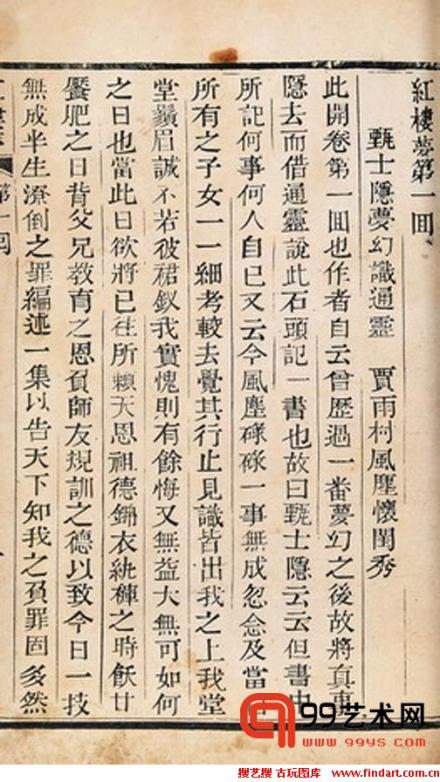 紅樓夢第一囬
甄士隱夢幻識通靈　賈雨村風塵懷閨秀
此開卷第一囬也作者自云曾歷過一番夢幻之後故將真事
隱去而借通靈說此石頭記一書也故曰甄士隱云云但書中
所記何事何人自己又云今風塵碌碌一事無成忽念及當
所有之子女一一細考較去覺其行止見識皆出我之上我堂
堂鬚眉誠不若彼裙釵我實愧則有餘悔又無益大無可如何
之日也當此日欲將已往所賴天恩祖德錦衣紈褲之時飫甘
饜肥之日背父兄教育之恩負師友規訓之德以致今日一技
無成半生潦倒之罪編述一集以告天下知我之負罪固多然
第一囘
99艺术网
www.99ys.com
搜艺搜 古玩图库 www.findart.com.cn